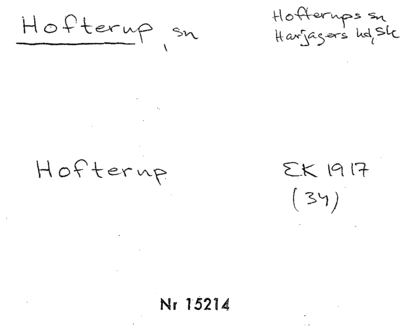 Hofterup, sn
Hofterups sn
Harjagers hd, Sk
Hofterup
EK 1917
(34)
Nr 15214